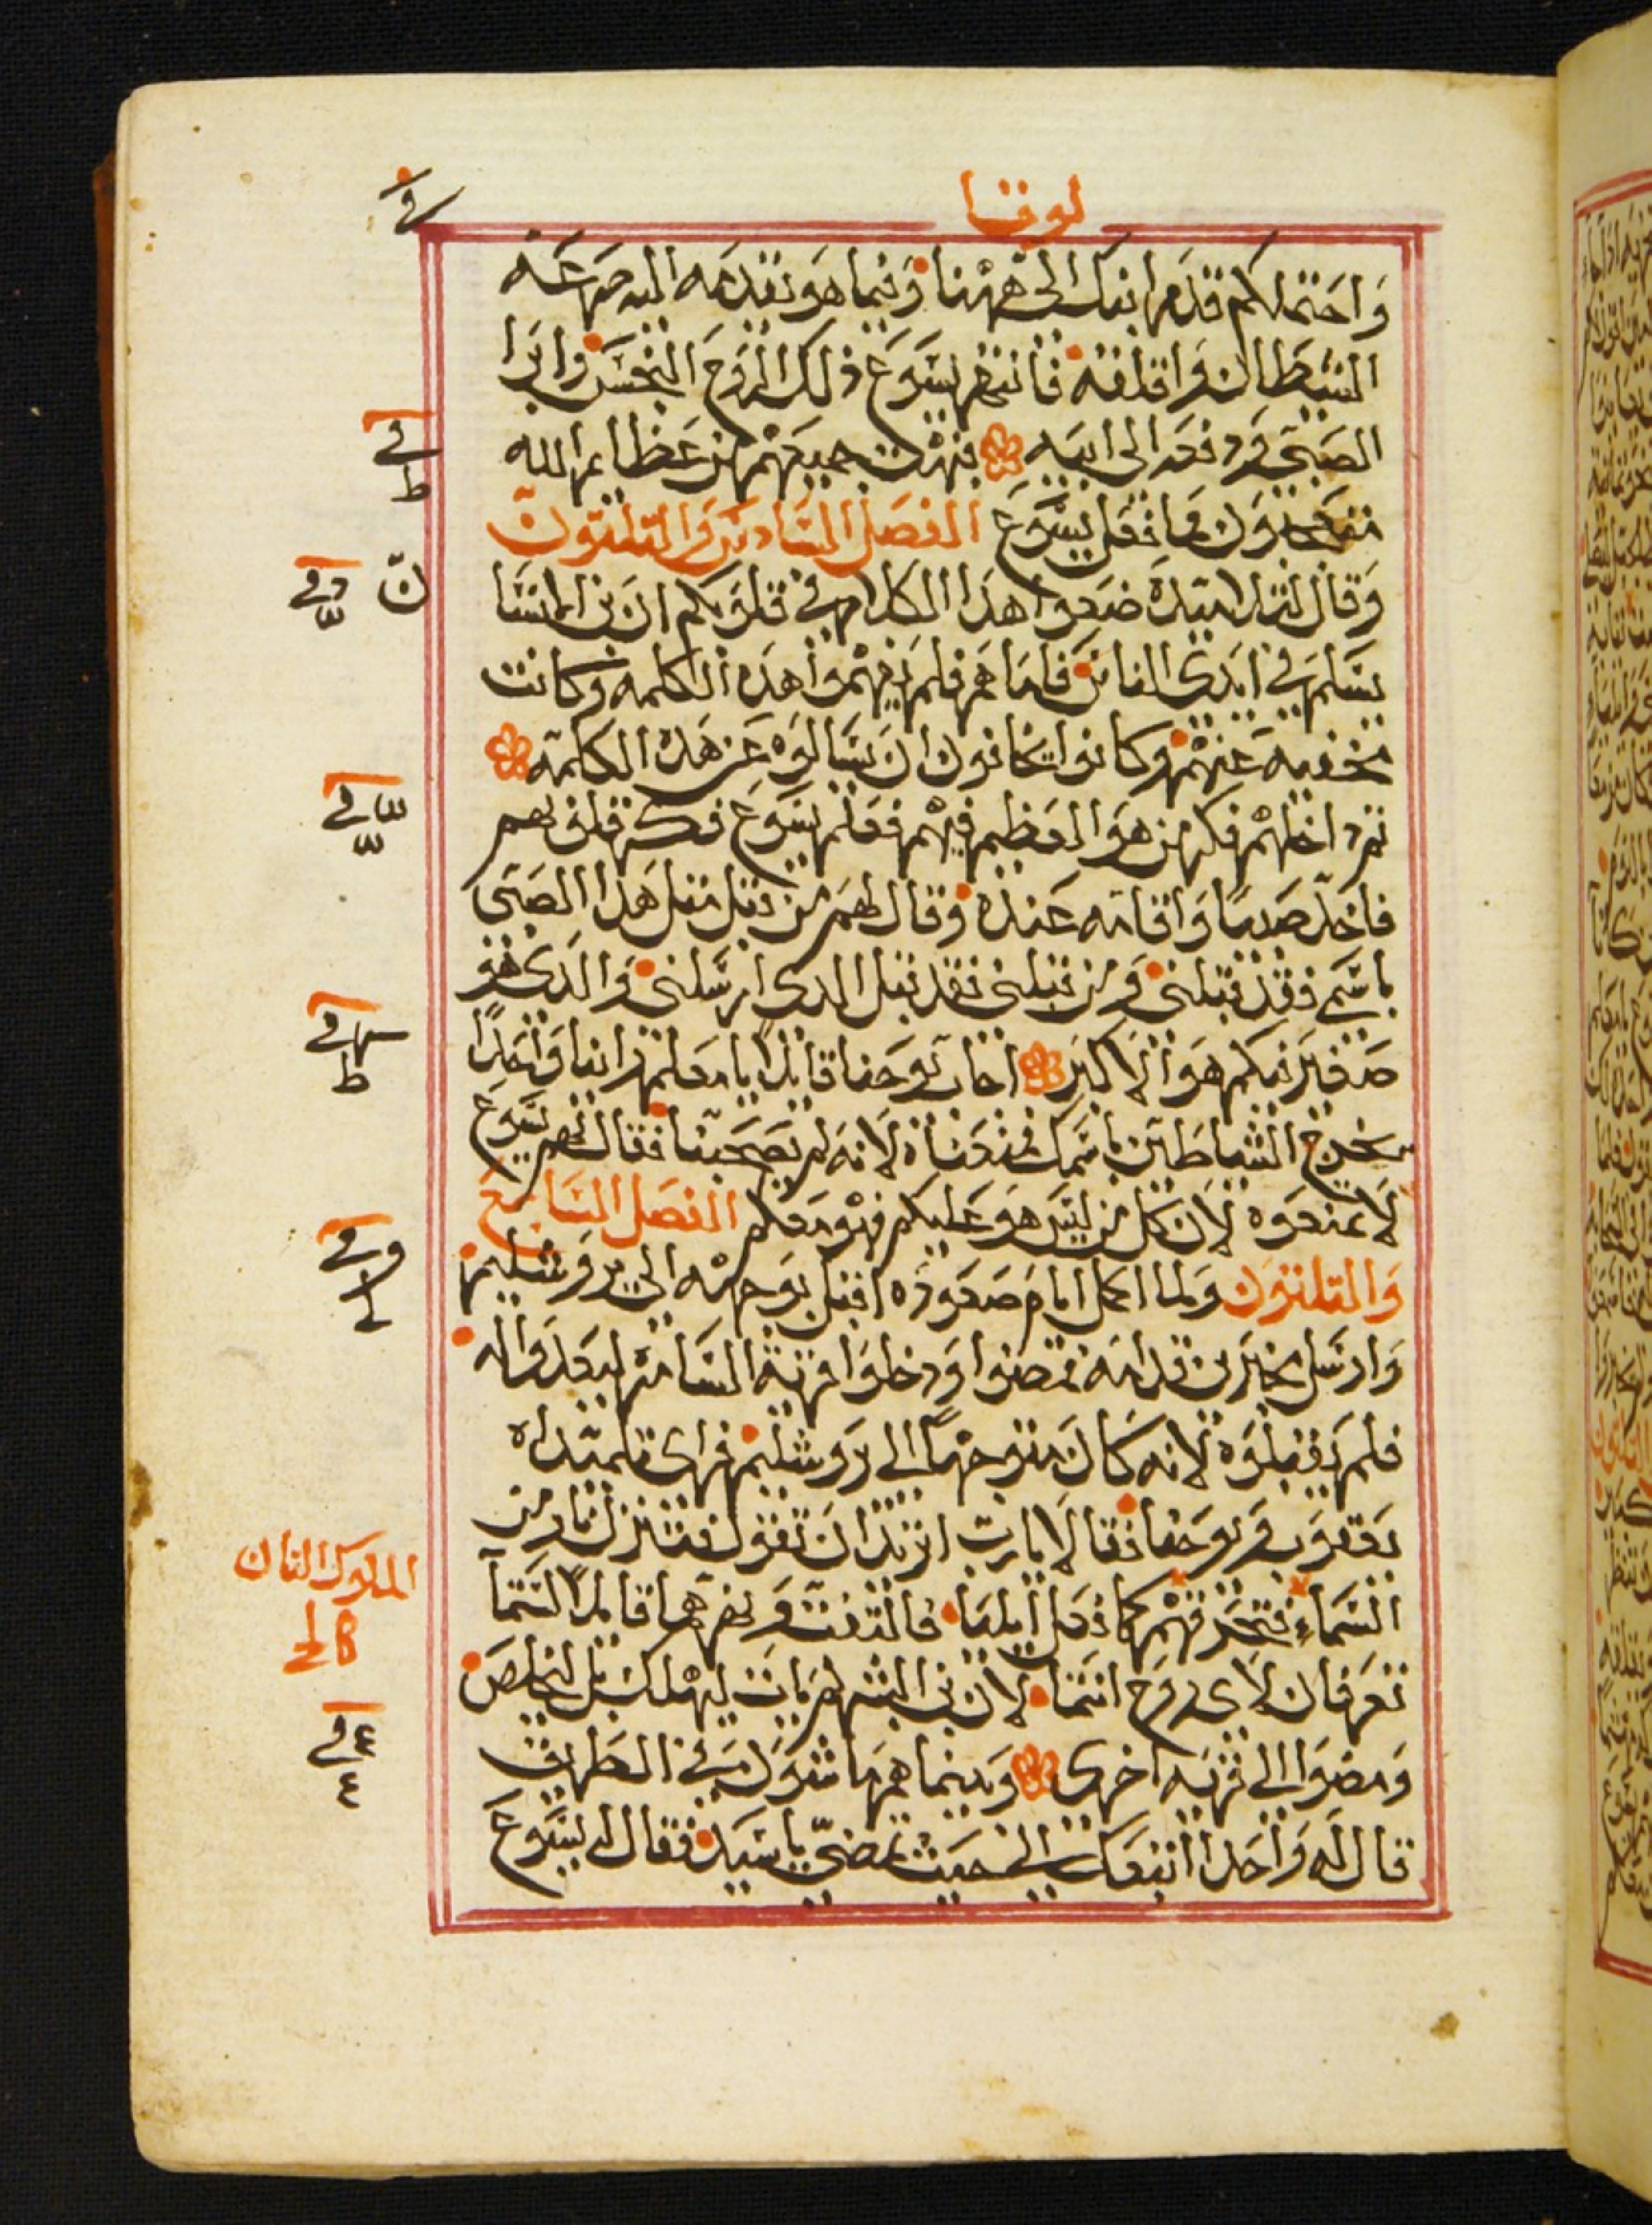 لوقا
واحتملكم قدم ابنك الى ههنا وفيما هو يقدمه اليه صرعه
الشيطان واقلقه فانتهر يسوع ذلك الروح النجس وابرا
الصبي ودفعه الى ابيه فبهت جميعهم من عظايم الله
متعجبون مما فعل يسوع الفصل السادس والتلتون
وقال لتلاميده ضعوا هذا الكلام في قلوبكم ان بن الانسا
يسلم في ايدي الناس فاما هم فلم يفهموا هذه الكلمه وكانت
مخفيه عنهم وكانوا يخافون ان يسالوه عن هده الكلمة
تم داخلهم فكر من هو العظيم فيهم فعلم يسوع فكر قلوبهم
فاخد صبيا واقامه عنده وقال لهم من قبل متل هدا الصبي
باسمي فقد قبلني ومن قبلني فقد قبل الدي ارسلني والدي هو
صغير فيكم هو الاكبر اجاب يوحنا قايلا يا معلم راينا واحدا
يخرج الشياطين باسمك فمنعناه لانه لم يصحبنا فقال لهم يسوع
لا تمنعوه لان كل من ليس هو عليكم فهو معكم الفصل السابع
والتلتون ولما اكمل ايام صعوده اقبل بوجهه الى يروشليم
وارسل مخبرين قدامه فمضوا ودخلوا قرية السامره ليعدوا له
فلم يقبلوه لانه كان متوجها الى يروشليم فراى تلميداه
يعقوب ويوحنا فقالا يا رب اتريد ان تقول فتنزل نار من
السماء فتحرقهم كما فعل ايليا فالتفت ونهرهما قايلا لستما
تعرفان لاي روح انتما لان بن البشر لم يات ليهلك بل ليخلص
ومضوا الى قريه اخرى وبينما هم ماشون في الطريق
قال له واحد اتبعك الى حيث تمضي يا سيد فقال له يسوع
الملوك التان